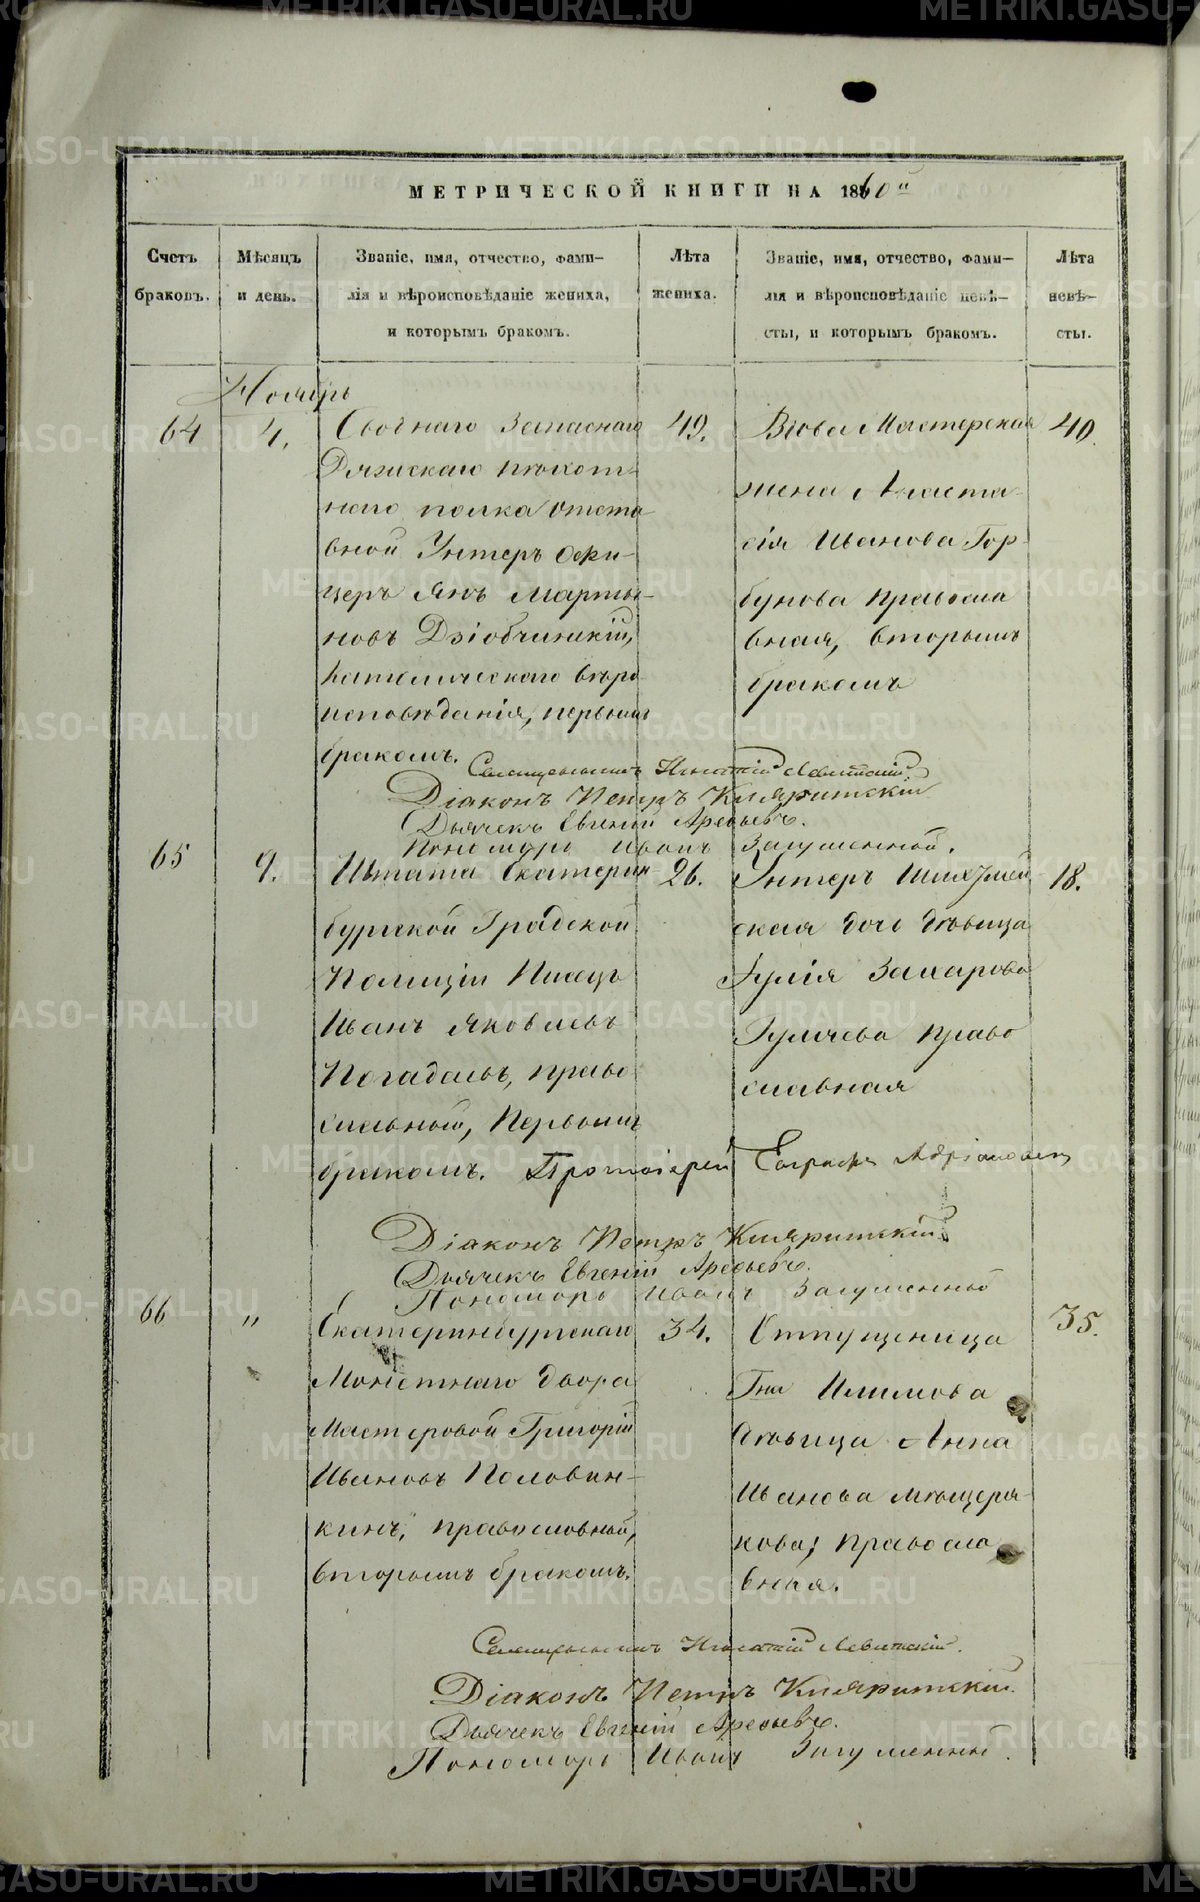 МЕТРИЧЕСКОЙ КНИГИ НА 1860й
Счетъ браковъ.
Мѣсяцъ и день.
Званіе, имя, отчество, фами-
лія и вѣроисповѣданіе жениха,
и которымъ бракомъ.
Лѣта жениха.
Званіе, имя, отчество, фами-
лія и вѣроисповѣданіе невѣ-
сты, и которымъ бракомъ.
Лѣта невѣ-
сты.
Ноябрь
64
4.
Своднаго Запаснаго
пѣхот-
наго полка Отста-
вной Унтеръ Офи-
церъ Янъ Марты-
новъ Дзіобчинскій,
католическаго вѣро
исповѣданія, первымъ
бракомъ.
49.
Вдова Мастерская
жена Анаста
сія Иванова Гор-
бунова православ
вная, вторымъ
бракомъ
40.
Священникъ Игнатій Левитскій.
Діаконъ Петръ
Дьячекъ Евгеній Арефьевъ.
Пономарь Иванъ Загуменной.
65
9.
Штата Екатерин
бургской Градской
Полиціи Писецъ
Иванъ Яковлевъ
Погадаевъ, право
славной, Первымъ
бракомъ.
26.
Унтеръ Шихтмей
ская дочь дѣвица
Іулія Захарова
право
славная
18.
Протоіерей Евграфъ
Діаконъ Петръ
Дьячекъ Евгеній Арефьевъ.
Пономарь Иванъ Загуменной
66
"
Екатеринбургскаго
Монетнаго двора
Мастеровой Григорій
Ивановъ Половин-
кинъ, православный,
вторымъ бракомъ.
34.
Отпущеница
Гна
дѣвица Анна
Иванова Мѣщеря-
кова; Правосла
вная.
35.
Священникъ Игнатій Левитскій.
Діаконъ Петръ
Дьячекъ Евгеній Арефьевъ.
Пономарь Иванъ Загуменный.
METRIKI.GASO-URAL.RU